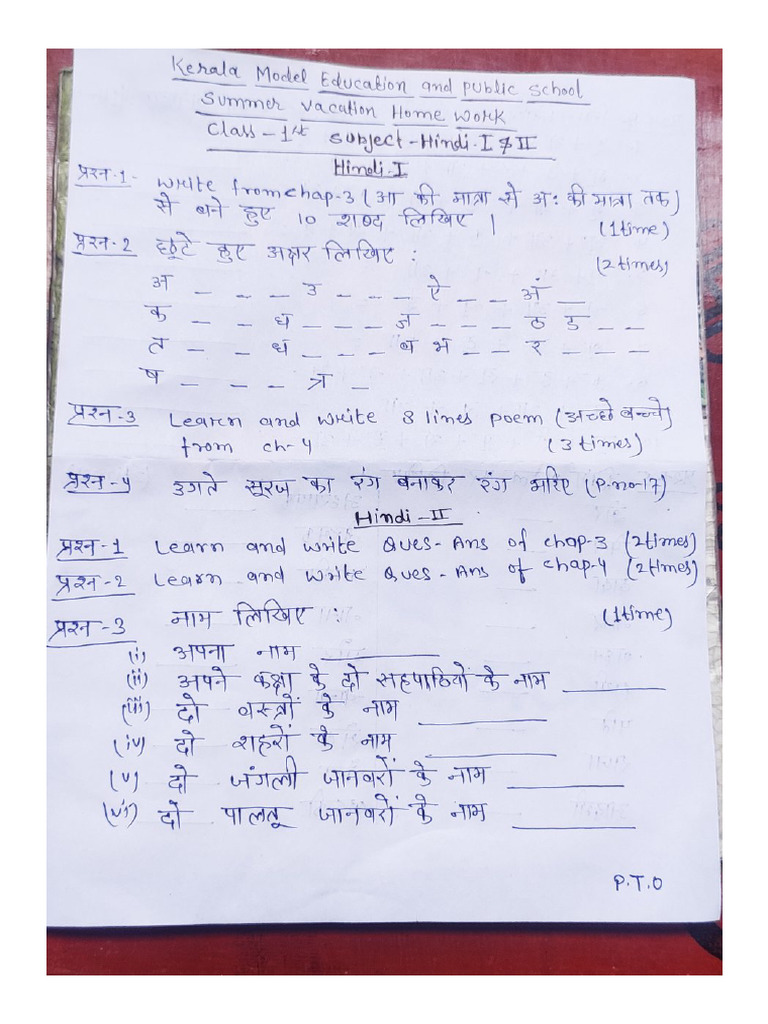 Kerala Model Education and public School
Summer vacation Home work
Class - 1st Subject - Hindi - I & II
Hindi - I
प्रश्न-1- write from chap-3 (आ की मात्रा से अः की मात्रा तक)
से बने हुए 10 शब्द लिखिए । (1 time)
प्रश्न-2 छूटे हुए अक्षर लिखिए : (2 times)
अ _ _ _ _ उ _ _ _ _ ऐ _ _ अं _
क _ _ _ घ _ _ _ ज _ _ _ _ ठ ड _ _
त _ _ थ _ _ _ _ ब भ _ _ र _ _ _
ष _ _ _ त्र _
प्रश्न-3 Learn and write 8 lines poem (अच्छे बच्चे)
from ch-4 (3 times)
प्रश्न-4 उगते सूरज का रंग बनाकर रंग भरिए (P.no-17)
Hindi - II
प्रश्न-1 Learn and write Ques-Ans of chap-3 (2 times)
प्रश्न-2 Learn and write Ques-Ans of chap-4 (2 times)
प्रश्न-3 नाम लिखिए : (1 time)
(i) अपना नाम ________
(ii) अपने कक्षा के दो सहपाठियों के नाम ________
(iii) दो वस्त्रों के नाम ________
(iv) दो शहरों के नाम ________
(v) दो जंगली जानवरों के नाम ________
(vi) दो पालतू जानवरों के नाम ________
P.T.O